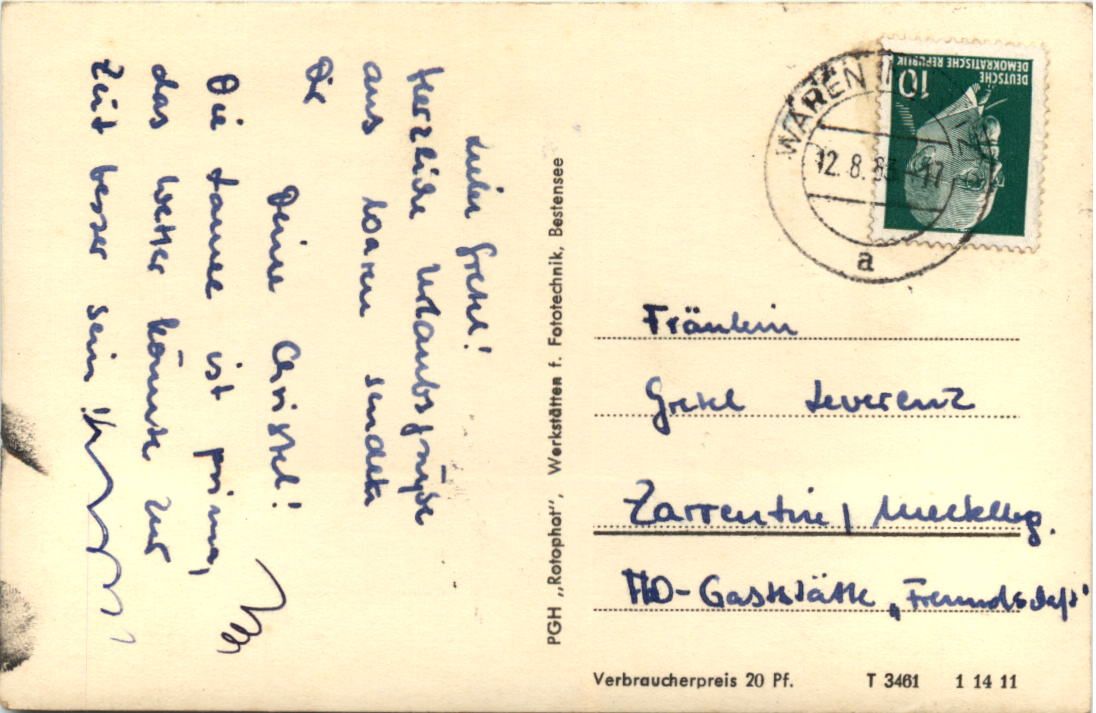 Liebe Gretel!
Herzliche Urlaubsgrüße
aus Waren sendet
Dir
Deine Christel!
Die Laune ist prima,
das Wetter könnte zur
Zeit besser sein!
PGH „Rotophot“, Werkstätten f. Fototechnik, Bestensee
DEUTSCHE
DEMOKRATISCHE REPUBLIK
10
WAREN
12.8.63-17
a
Fräulein
Gretel Leverenz
Zarrentin / Mecklbg.
HO-Gaststätte „Freundschaft“
Verbraucherpreis 20 Pf. T 3461 1 14 11